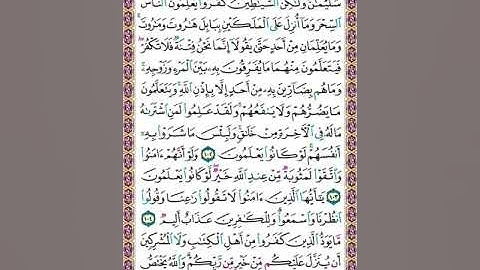 سُلَيْمَٰنُ وَلَٰكِنَّ ٱلشَّيَٰطِينَ كَفَرُوا۟ يُعَلِّمُونَ ٱلنَّاسَ
ٱلسِّحْرَ وَمَآ أُنزِلَ عَلَى ٱلْمَلَكَيْنِ بِبَابِلَ هَٰرُوتَ وَمَٰرُوتَ ۚ
وَمَا يُعَلِّمَانِ مِنْ أَحَدٍ حَتَّىٰ يَقُولَآ إِنَّمَا نَحْنُ فِتْنَةٌ فَلَا تَكْفُرْ ۖ
فَيَتَعَلَّمُونَ مِنْهُمَا مَا يُفَرِّقُونَ بِهِۦ بَيْنَ ٱلْمَرْءِ وَزَوْجِهِۦ ۚ
وَمَا هُم بِضَآرِّينَ بِهِۦ مِنْ أَحَدٍ إِلَّا بِإِذْنِ ٱللَّهِ ۚ وَيَتَعَلَّمُونَ
مَا يَضُرُّهُمْ وَلَا يَنفَعُهُمْ ۚ وَلَقَدْ عَلِمُوا۟ لَمَنِ ٱشْتَرَىٰهُ
مَا لَهُۥ فِى ٱلْءَاخِرَةِ مِنْ خَلَٰقٍ ۚ وَلَبِئْسَ مَا شَرَوْا۟ بِهِۦٓ
أَنفُسَهُمْ ۚ لَوْ كَانُوا۟ يَعْلَمُونَ ١٠٢ وَلَوْ أَنَّهُمْ ءَامَنُوا۟
وَٱتَّقَوْا۟ لَمَثُوبَةٌ مِّنْ عِندِ ٱللَّهِ خَيْرٌ ۖ لَّوْ كَانُوا۟ يَعْلَمُونَ
١٠٣ يَٰٓأَيُّهَا ٱلَّذِينَ ءَامَنُوا۟ لَا تَقُولُوا۟ رَٰعِنَا وَقُولُوا۟
ٱنظُرْنَا وَٱسْمَعُوا۟ ۗ وَلِلْكَٰفِرِينَ عَذَابٌ أَلِيمٌ ١٠٤
مَّا يَوَدُّ ٱلَّذِينَ كَفَرُوا۟ مِنْ أَهْلِ ٱلْكِتَٰبِ وَلَا ٱلْمُشْرِكِينَ
أَن يُنَزَّلَ عَلَيْكُم مِّنْ خَيْرٍ مِّن رَّبِّكُمْ ۗ وَٱللَّهُ يَخْتَصُّ